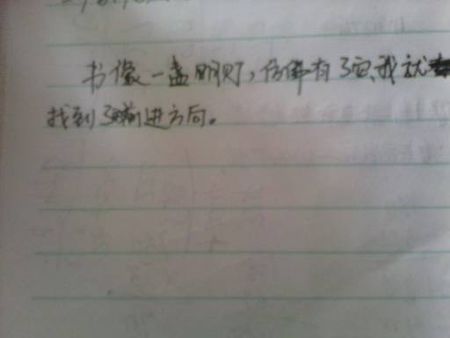 书像一盏明灯，仿佛有了它，我就
找到了前进方向。